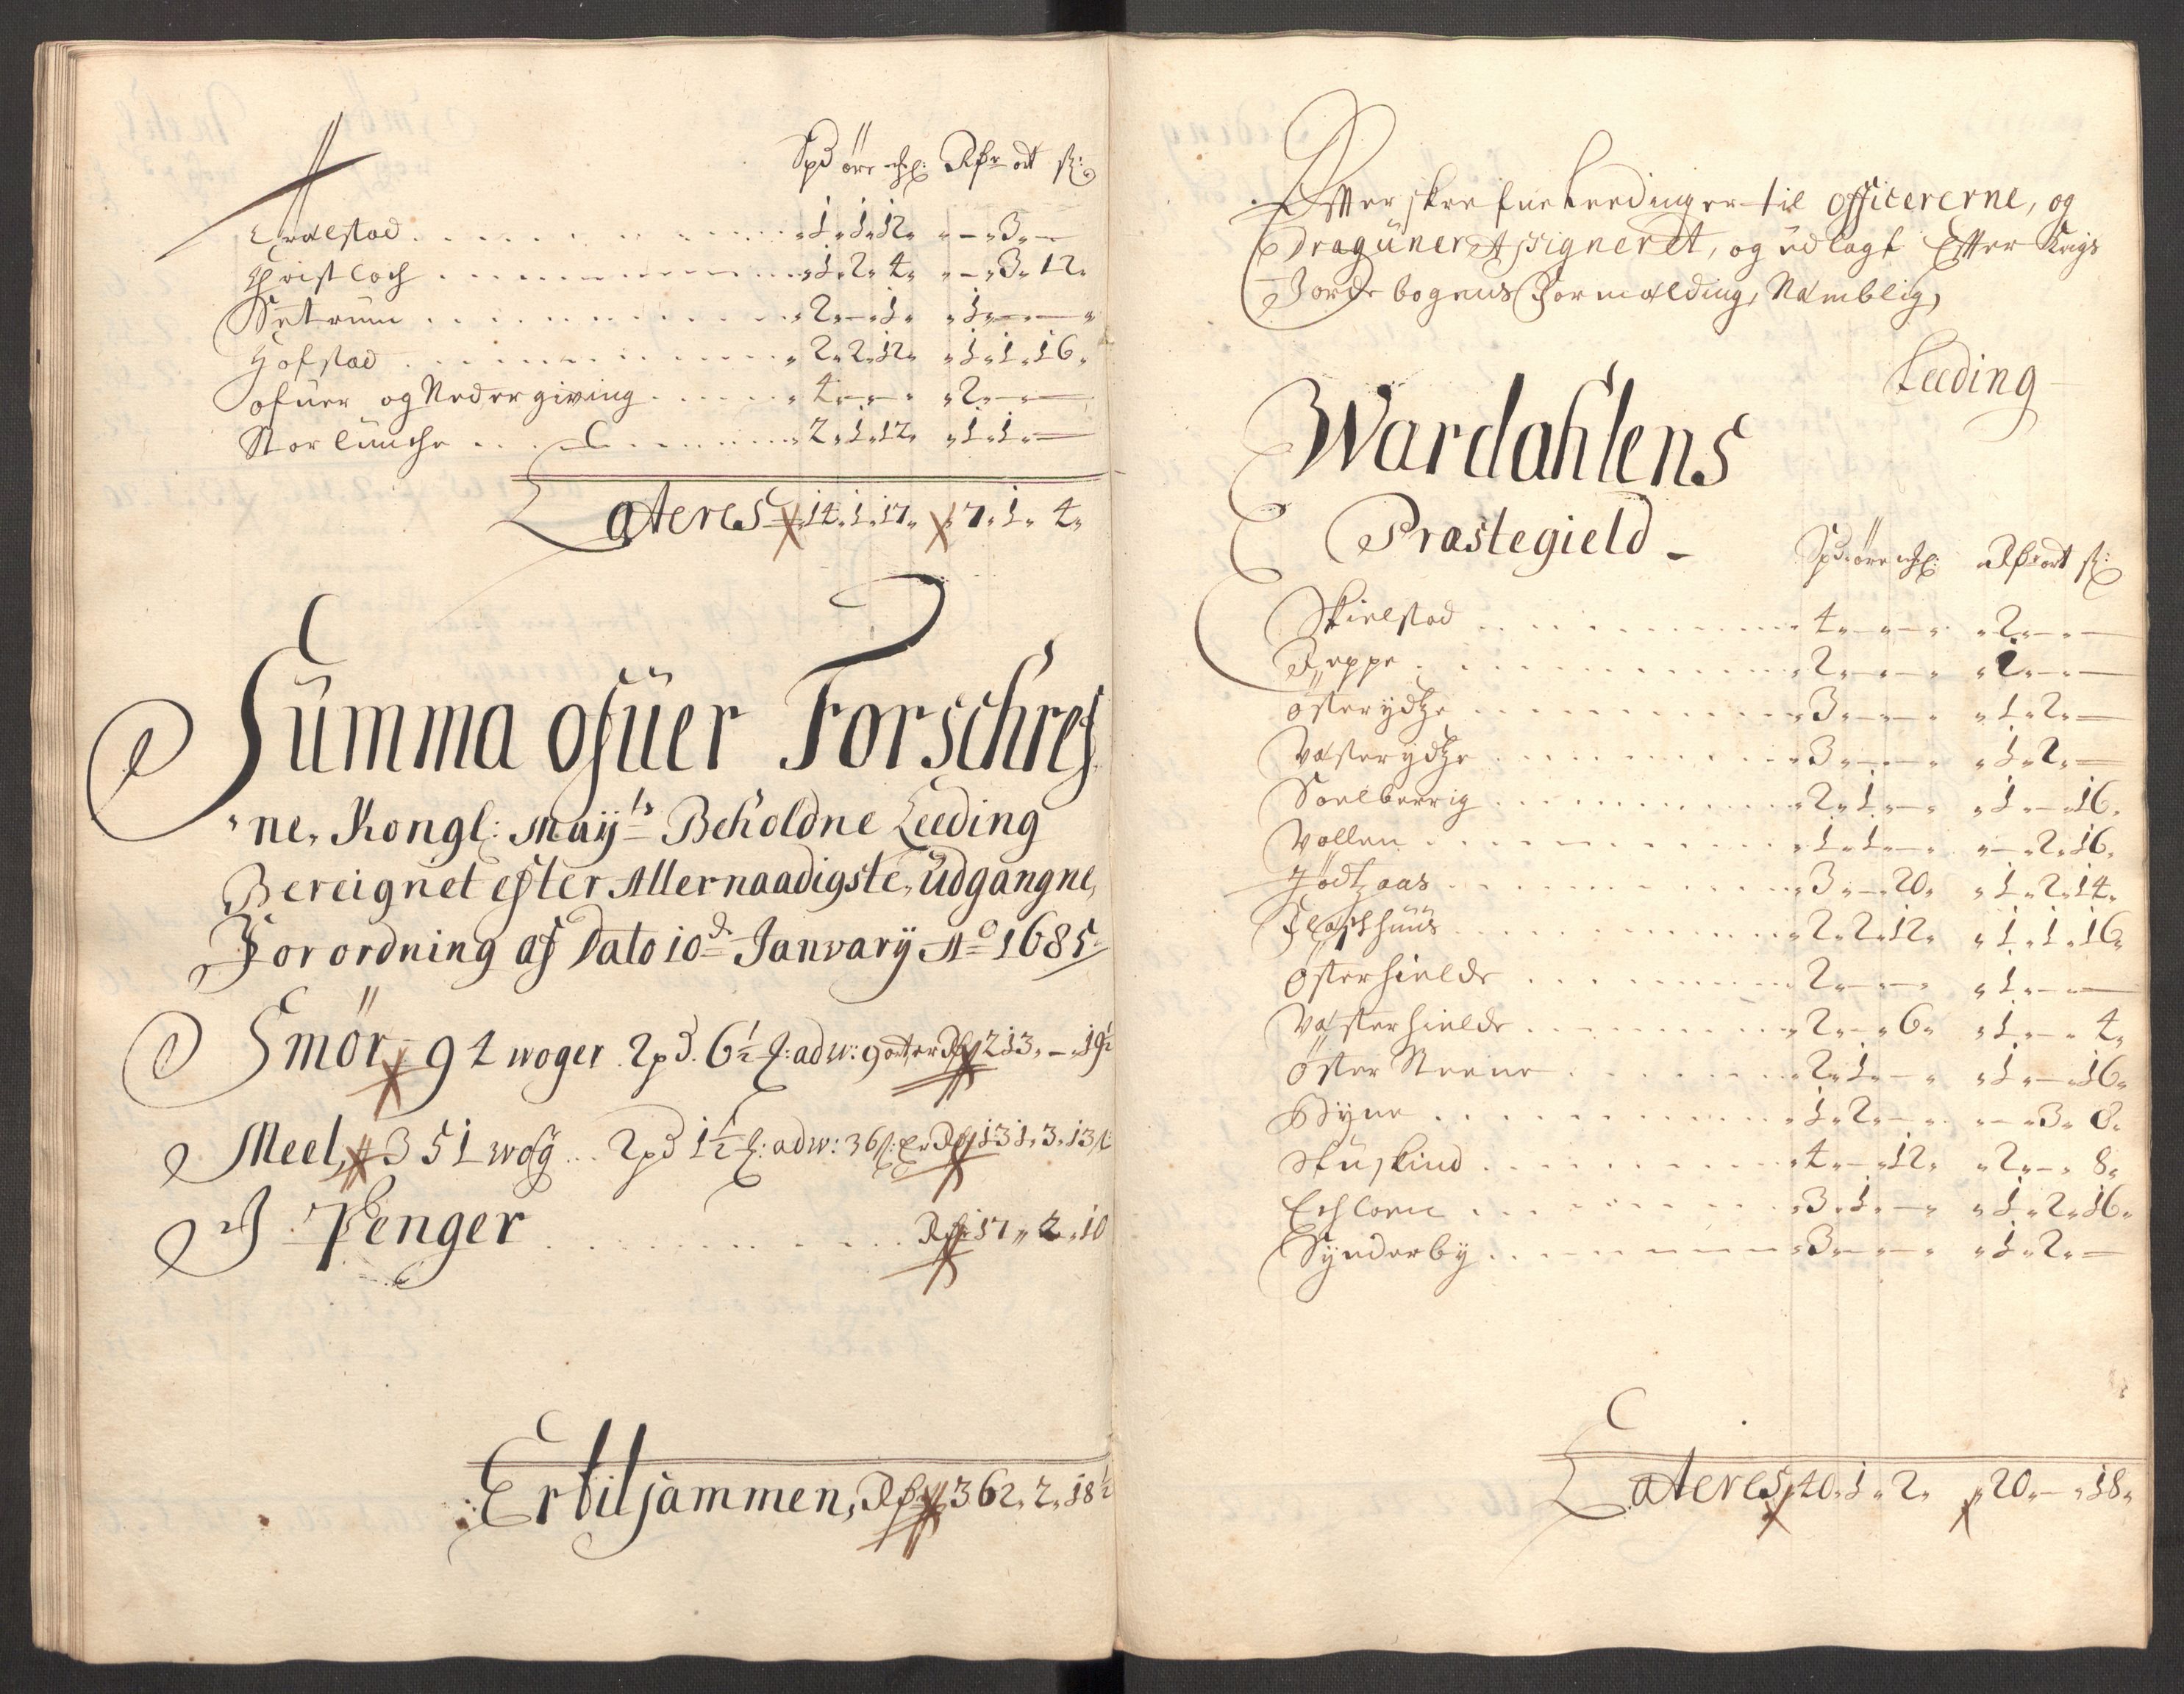 Spd öre mk: Rdr ort sk:
Eralstad . . . . „1„1„12„ „—„3„—
Christloch . . . . „1„2„4„ „—„3„12„
Setrum . . . . „2„—„1„ „1„—„—„
Hofstad . . . . „2„2„12„ „1„1„16„
ofuer og Nedergiving . . . . „4„—„—„ „2„—„—
Storlunche . . . . „2„1„12„ „1„1„—
Lateres „14„1„17„ „7„1„4„
Summa ofüer Forschref
ne, Kongl: Mayjts Beholdne Leeding
Bereignet efter Allernaadigste, üdgangne,
Forordning af Dato 10de Janvarij Ao 1685
Smör - 94 woger 2pd. 6½ : ad w: 9 orter Rdr 213„—„19½
Meel, 351 wog . . 2pd 1½ : ad w: 36 sk: Er Rdr 131„3„13 sk
I Penger . . . . Rdr 17„2„10
Er tilsammen, Rdr 362„2„18½
Efterskrefne Leedinger til officererne, og
Dragüner Assigneret, og udlagt Efter Krigs
Jordebogens Formælding, Næmblig,
Leeding
Wardahlens
Præstegield -
Spd öre mk: Rdr ort sk:
Skielstad . . . . „4„—„—„ „2„—„—
Reppe . . . . „2„—„—„ „1„—„—
österydtze . . . . „3„—„—„ „1„2„—
Vesterydtze . . . . „3„—„—„ „1„2„—
Soelberrig . . . . „2„1„—„ „1„—„16„
Vollen . . . . „1„1„—„ „—„2„16„
Jödtzaas . . . . „3„—„20„ „1„2„14„
Fleskhuus . . . . „2„2„12„ „1„1„16„
Østerhielde . . . . „2„—„—„ „1„—„—
Vesterhielde . . . . „2„—„6„ „1„—„4„
öster Steene . . . . „2„1„—„ „1„—„16„
Byne . . . . „1„2„—„ „—„3„8„
Stuskind . . . . „4„—„12„ „2„—„8„
Echloen . . . . „3„1„—„ „1„2„16„
Synderby . . . . „3„—„—„ „1„2„—
Lateres „40„1„2„ „20„—„18„